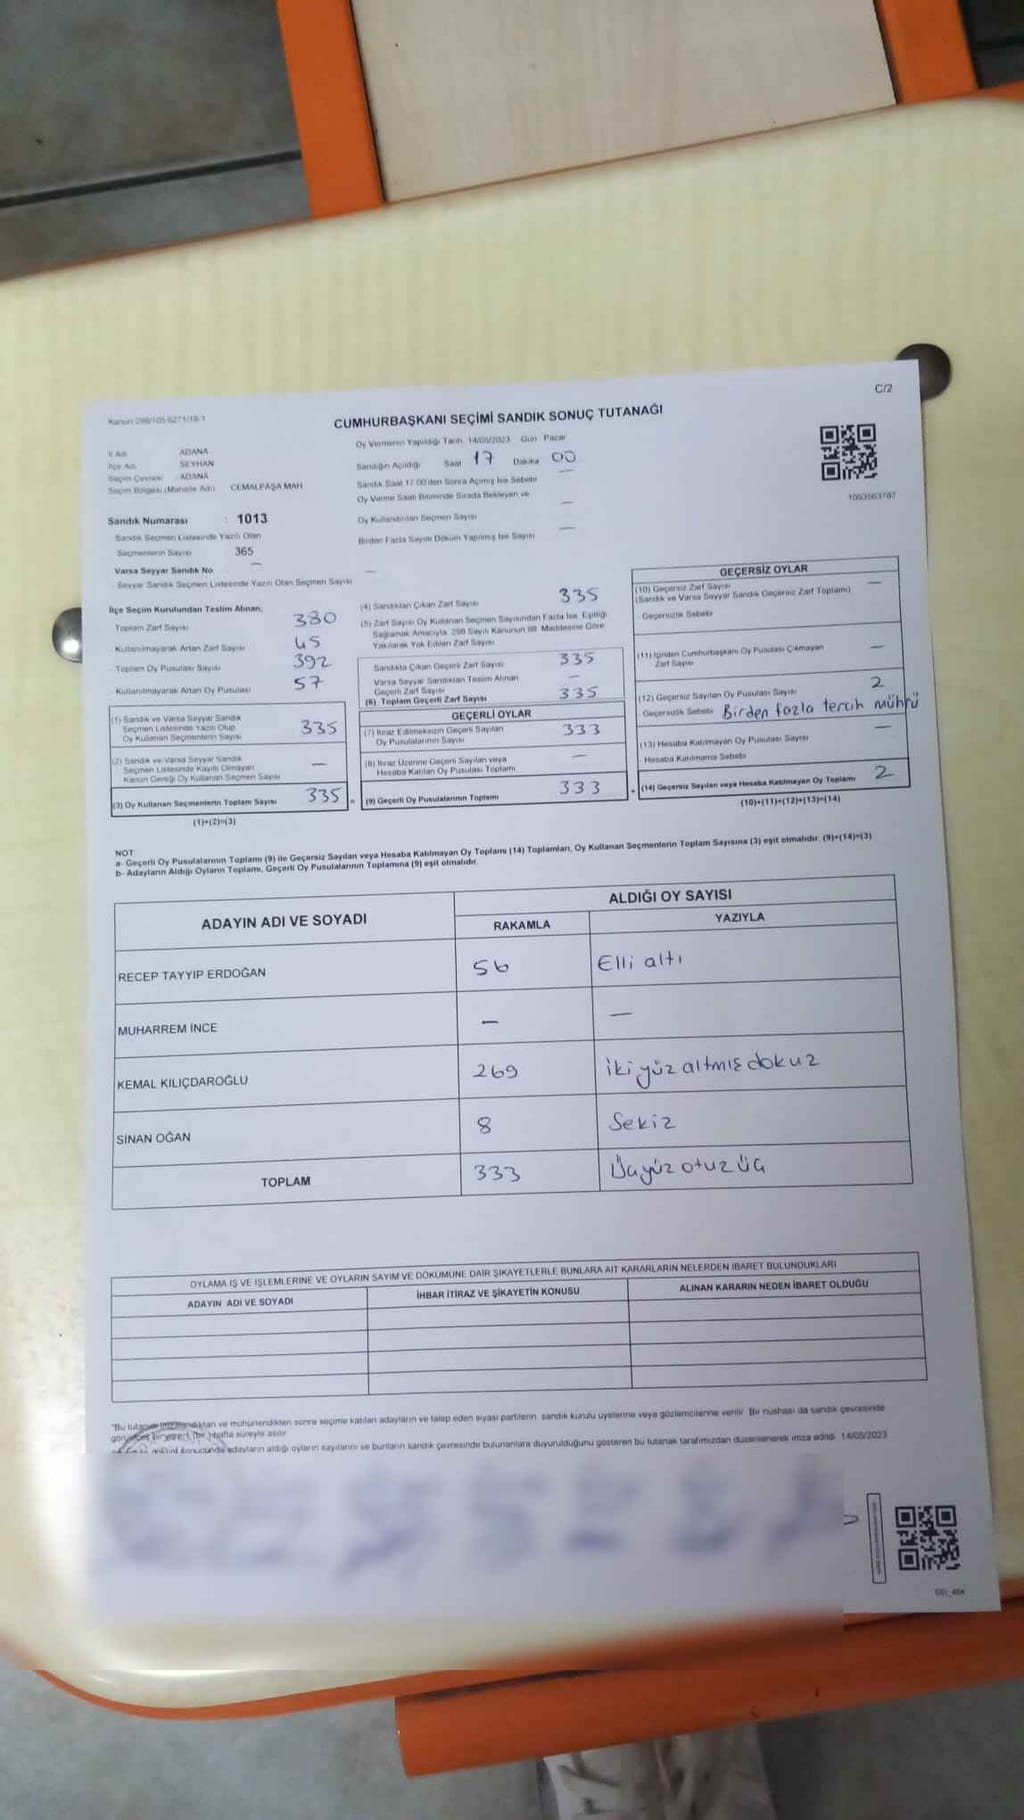 C/2
Kanun 298/105-6271/18-1
CUMHURBAŞKANI SEÇİMİ SANDIK SONUÇ TUTANAĞI
İl Adı ADANA
İlçe Adı SEYHAN
Seçim Çevresi ADANA
Seçim Bölgesi (Mahalle Adı) CEMALPAŞA MAH
Sandık Numarası : 1013
Sandık Seçmen Listesinde Yazılı Olan
Seçmenlerin Sayısı 365
Varsa Seyyar Sandık No —
Seyyar Sandık Seçmen Listesinde Yazılı Olan Seçmen Sayısı —
Oy Vermenin Yapıldığı Tarih 14/05/2023 Gün Pazar
Sandığın Açıldığı Saat 17 Dakika 00
Sandık Saat 17:00'den Sonra Açılmış İse Sebebi —
Oy Verme Saati Bitiminde Sırada Bekleyen ve
Oy Kullandırılan Seçmen Sayısı —
Birden Fazla Sayım Döküm Yapılmış İse Sayısı —
1093563787
İlçe Seçim Kurulundan Teslim Alınan;
Toplam Zarf Sayısı 380
Kullanılmayarak Artan Zarf Sayısı 45
Toplam Oy Pusulası Sayısı 392
Kullanılmayarak Artan Oy Pusulası 57
(1) Sandık ve Varsa Seyyar Sandık
Seçmen Listesinde Yazılı Olup
Oy Kullanan Seçmenlerin Sayısı 335
(2) Sandık ve Varsa Seyyar Sandık
Seçmen Listesinde Kayıtlı Olmayan
Kanun Gereği Oy Kullanan Seçmen Sayısı —
(3) Oy Kullanan Seçmenlerin Toplam Sayısı 335 =
(1)+(2)=(3)
(4) Sandıktan Çıkan Zarf Sayısı 335
(5) Zarf Sayısı Oy Kullanan Seçmen Sayısından Fazla İse, Eşitliği
Sağlamak Amacıyla, 298 Sayılı Kanunun 98. Maddesine Göre
Yakılarak Yok Edilen Zarf Sayısı
Sandıkta Çıkan Geçerli Zarf Sayısı 335
Varsa Seyyar Sandıktan Teslim Alınan
Geçerli Zarf Sayısı —
(6) Toplam Geçerli Zarf Sayısı 335
GEÇERLİ OYLAR
(7) İtiraz Edilmeksizin Geçerli Sayılan
Oy Pusulalarının Sayısı 333
(8) İtiraz Üzerine Geçerli Sayılan veya
Hesaba Katılan Oy Pusulası Toplamı —
(9) Geçerli Oy Pusulalarının Toplamı 333 +
GEÇERSİZ OYLAR
(10) Geçersiz Zarf Sayısı —
(Sandık ve Varsa Seyyar Sandık Geçersiz Zarf Toplamı)
Geçersizlik Sebebi
(11) İçinden Cumhurbaşkanı Oy Pusulası Çıkmayan
Zarf Sayısı —
(12) Geçersiz Sayılan Oy Pusulası Sayısı 2
Geçersizlik Sebebi Birden fazla tercih mührü
(13) Hesaba Katılmayan Oy Pusulası Sayısı —
Hesaba Katılmama Sebebi
(14) Geçersiz Sayılan veya Hesaba Katılmayan Oy Toplamı 2
(10)+(11)+(12)+(13)=(14)
NOT:
a- Geçerli Oy Pusulalarının Toplamı (9) ile Geçersiz Sayılan veya Hesaba Katılmayan Oy Toplamı (14) Toplamları, Oy Kullanan Seçmenlerin Toplam Sayısına (3) eşit olmalıdır. (9)+(14)=(3)
b- Adayların Aldığı Oyların Toplamı, Geçerli Oy Pusulalarının Toplamına (9) eşit olmalıdır.
ADAYIN ADI VE SOYADI
ALDIĞI OY SAYISI
RAKAMLA YAZIYLA
RECEP TAYYİP ERDOĞAN 56 Elli altı
MUHARREM İNCE — —
KEMAL KILIÇDAROĞLU 269 iki yüz altmış dokuz
SİNAN OĞAN 8 Sekiz
TOPLAM 333 Üçyüz otuz üç
OYLAMA İŞ VE İŞLEMLERİNE VE OYLARIN SAYIM VE DÖKÜMÜNE DAİR ŞİKAYETLERLE BUNLARA AİT KARARLARIN NELERDEN İBARET BULUNDUKLARI
ADAYIN ADI VE SOYADI İHBAR İTİRAZ VE ŞİKAYETİN KONUSU ALINAN KARARIN NEDEN İBARET OLDUĞU
"Bu tutanak imzalandıktan ve mühürlendikten sonra seçime katılan adayların ve talep eden siyasi partilerin sandık kurulu üyelerine veya gözlemcilerine verilir. Bir nüshası da sandık çevresinde
bir yere (bir) hafta süreyle asılır
sonucunda adayların aldığı oyların sayılarını ve bunların sandık çevresinde bulunanlara duyurulduğunu gösteren bu tutanak tarafımızdan düzenlenerek imza edildi. 14/05/2023